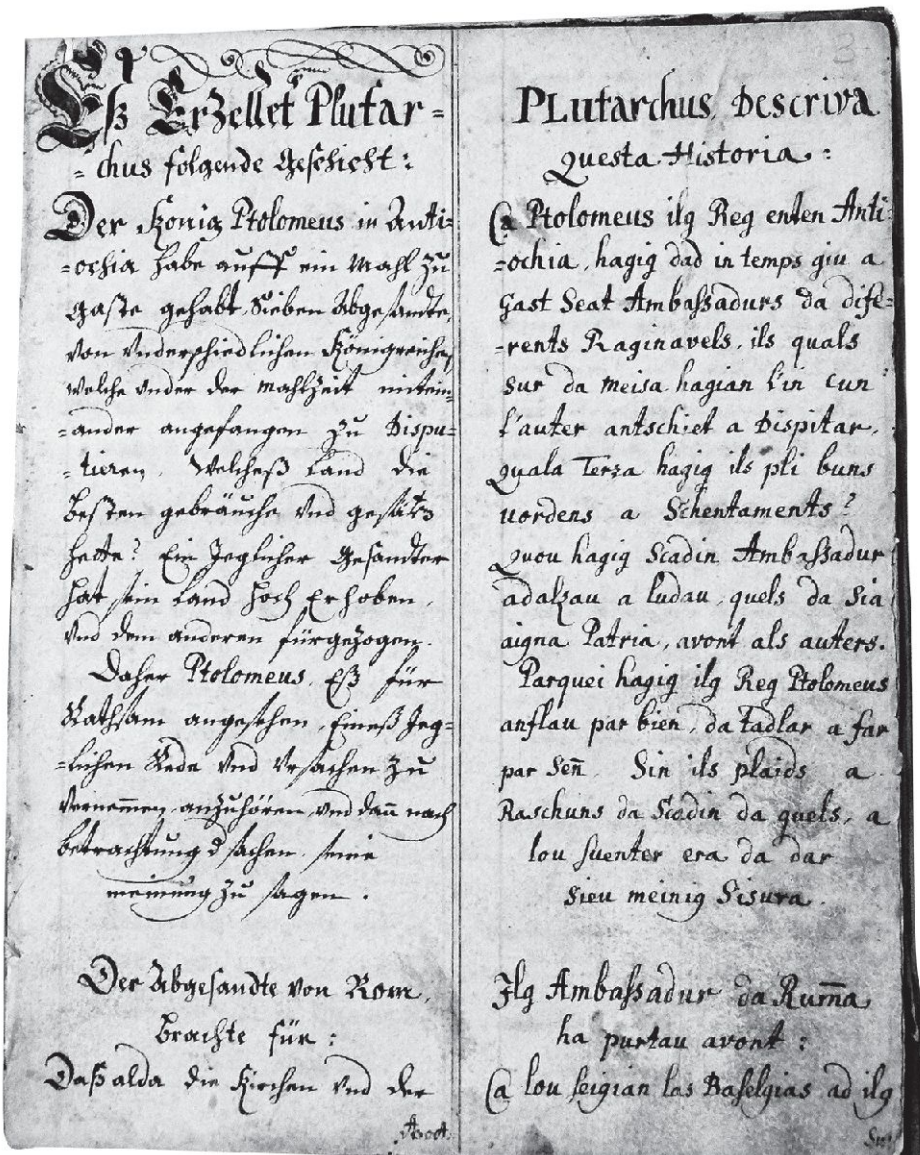 Eß Erzellet Plutar=
=chus folgende Geschicht:
Der König Ptolomeus in Anti=
=ochia habe auff ein Mahl zu
Gaste gehabt Sieben Abgesandte,
von underschiedlichen Königreichen,
welche under der Mahlzeit mitein=
=ander angefangen zu Dispu=
=tieren, Welcheß Land die
besten gebräuche und gesätz
hette? Ein Jeglicher Gesandter
hat sein Land hoch Erhoben,
und dem anderen fürgezogen.
Daher Ptolomeus, Eß für
Rathsam angesehen, Eineß Jeg=
=lichen Rede und Ursachen zu
Vernemmen, anzuhören, und dann nach
betrachtung d sachen seine
meinung zu sagen.
Der Abgesandte von Rom,
brachte für:
Daß alda die Kirchen und der
3
PLutarchus, Descriva
Questa Historia:
Ca Ptolomeus ilg Reg enten Anti=
=ochia, hagig dad in temps giu a
Gast Seat Ambaßadurs da dife=
=rents Raginavels, ils quals
sur da meisa hagian l'in cun
l'auter antschiet a Dispitar,
Quala Terza hagig ils pli buns
uordens a Schentaments?
Quou hagig Scadin Ambaßadur
adalzau a ludau, quels da Sia
aigna Patria, avont als auters.
Parquei hagig ilg Reg Ptolomeus
anflau par bien, da tadlar a far
par Señ, Sin ils plaids a
Raschuns da Scadin da quels, a
lou suenter era da dar
sieu meinig Sisura.
Ilg Ambaßadur da Rum̄a,
ha purtau avont:
Ca lou seigian las Baselgias ad ilg